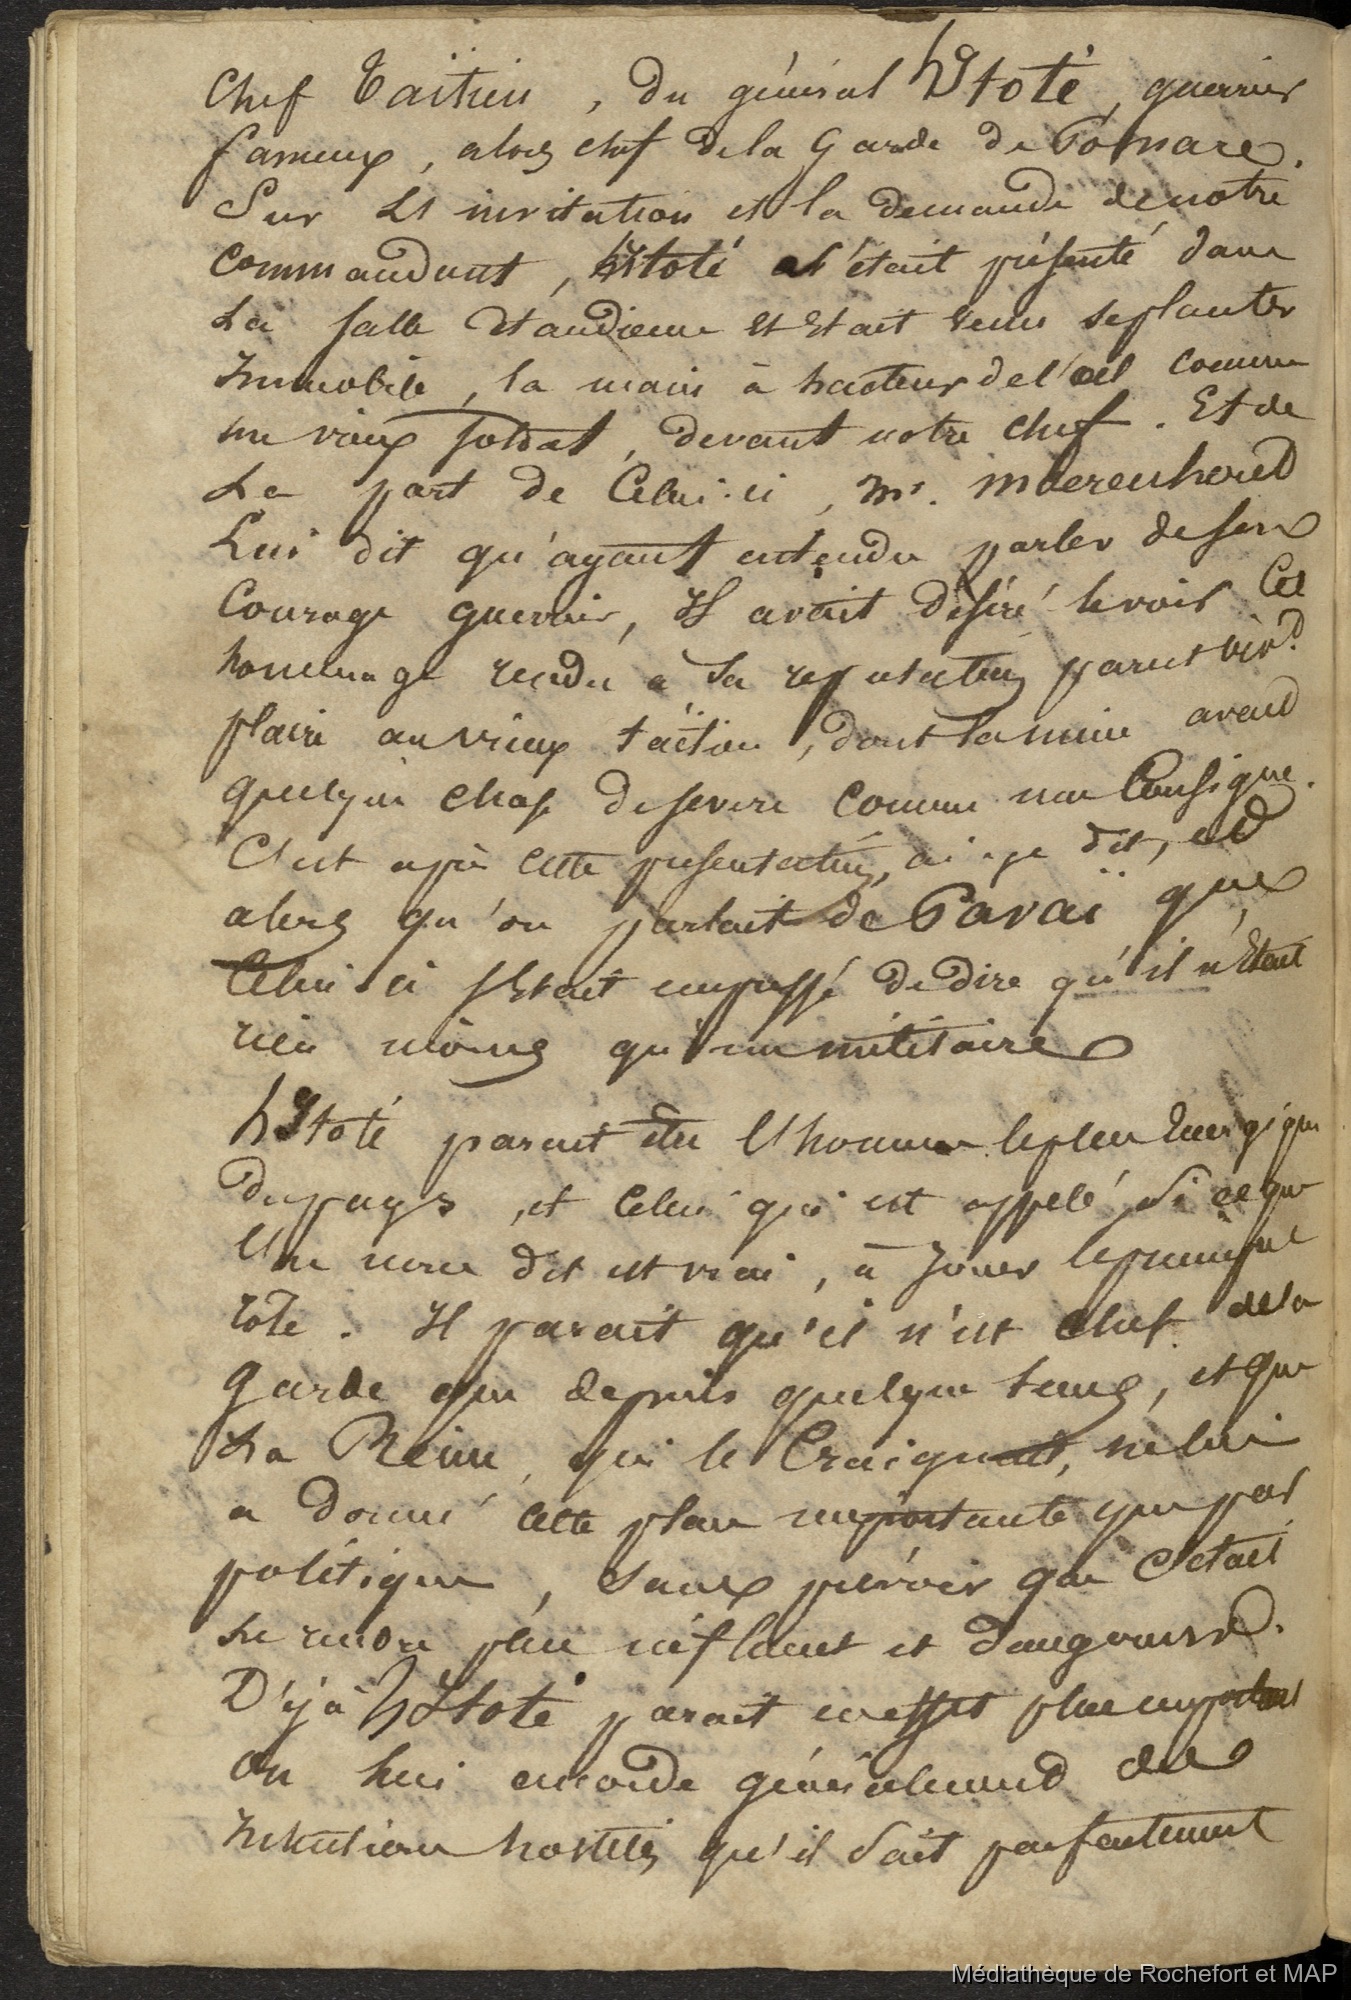 Chef Taïtien, du général hÿtoté, guerrier
fameux, alors chef de la Garde de Pomare.
Sur l'invitation et la demande de notre
commandant, hÿtoté s'était présenté dans
la salle d'audience et était venu se planter
Immobile, la main à hauteur de l'œil comme
un vieux soldat, devant notre chef. Et de
La part de Celui-ci, Mr. Moerenhout
Lui dit qu'ayant entendu parler de son
Courage guerrier, Il avait désiré le voir Cet
hommage rendu à Sa reputation parut
plaire au vieux taïtien, dont la mine avait
quelque chose de severe comme une Consigne.
C'est après cette presentation, ai-je dit, et
alors qu'on parlait de Pavaï que
Celui ci s'était empressé de dire qu'il n'était
rien moins qu'un militaire
hÿtoté parait être l'homme le plus Energique
du pays, et Celui qui est appelé, Si ce que
l'on nous dit est vrai, à Jouer le principal
rôle. Il parait qu'il n'est chef de la
garde que depuis quelque temps, et que
La Reine, qui le Craignait, ne lui
a donné cette place importante que par
politique, Sans prévoir que C'était
le rendre plus influent et dangereux.
Déjà hÿtoté parait en effet plus important
On lui accorde généralement des
Intentions hostiles qu'il Sait parfaitement
Médiathèque de Rochefort et MAP